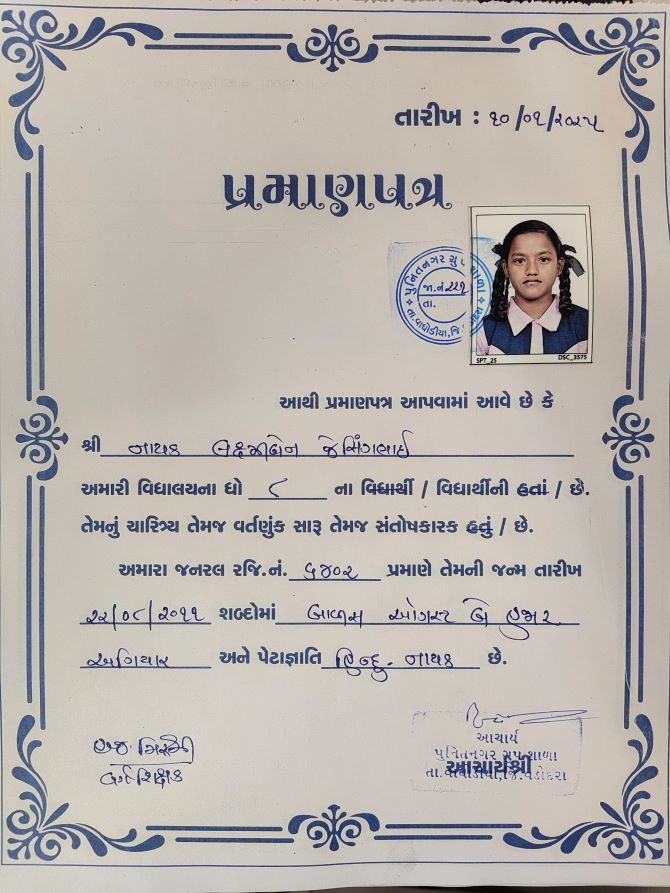 તારીખ : ૧૦/૦૧/૨૦૨૫
પ્રમાણપત્ર
પુનિતનગર ગ્રુપ શાળા
જા.નં.૨૨૧
તા.
તા.વાઘોડીયા,જિ.
SPT_25 DSC_3575
આથી પ્રમાણપત્ર આપવામાં આવે છે કે
શ્રી નાયક લક્ષ્મીબેન જેસિંગભાઈ
અમારી વિદ્યાલયના ધો ૮ ના વિદ્યાર્થી / વિદ્યાર્થીની હતાં / છે.
તેમનું ચારિત્ર્ય તેમજ વર્તણુંક સારૂ તેમજ સંતોષકારક હતું / છે.
અમારા જનરલ રજિ.નં. ૬૪૦૨ પ્રમાણે તેમની જન્મ તારીખ
૨૨/૦૮/૨૦૧૧ શબ્દોમાં બાવીસ ઓગસ્ટ બે હજાર
અગિયાર અને પેટાજ્ઞાતિ હિન્દુ - નાયક છે.
વર્ગ શિક્ષક
આચાર્ય
પુનિતનગર ગ્રુપ શાળા
આચાર્યશ્રી
તા.વાઘોડીયા,જિ.વડોદરા